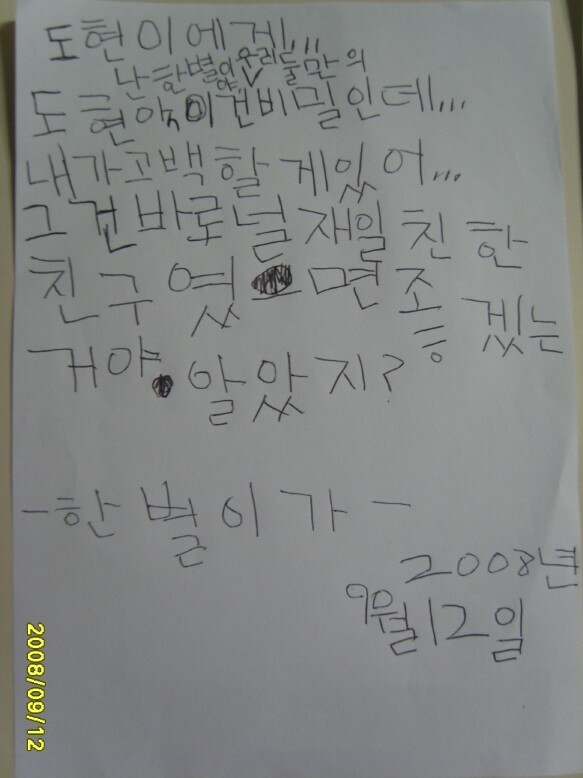 도현이에게...
난 한별이야 우리 둘만의
도현아 이건비밀인데...
내가고백할 게있어...
그건바로널 재일 친한
친구 였 면 조 겠는
거야. 알았지?
-한별이가-
2008년
9월12일
2008/09/12